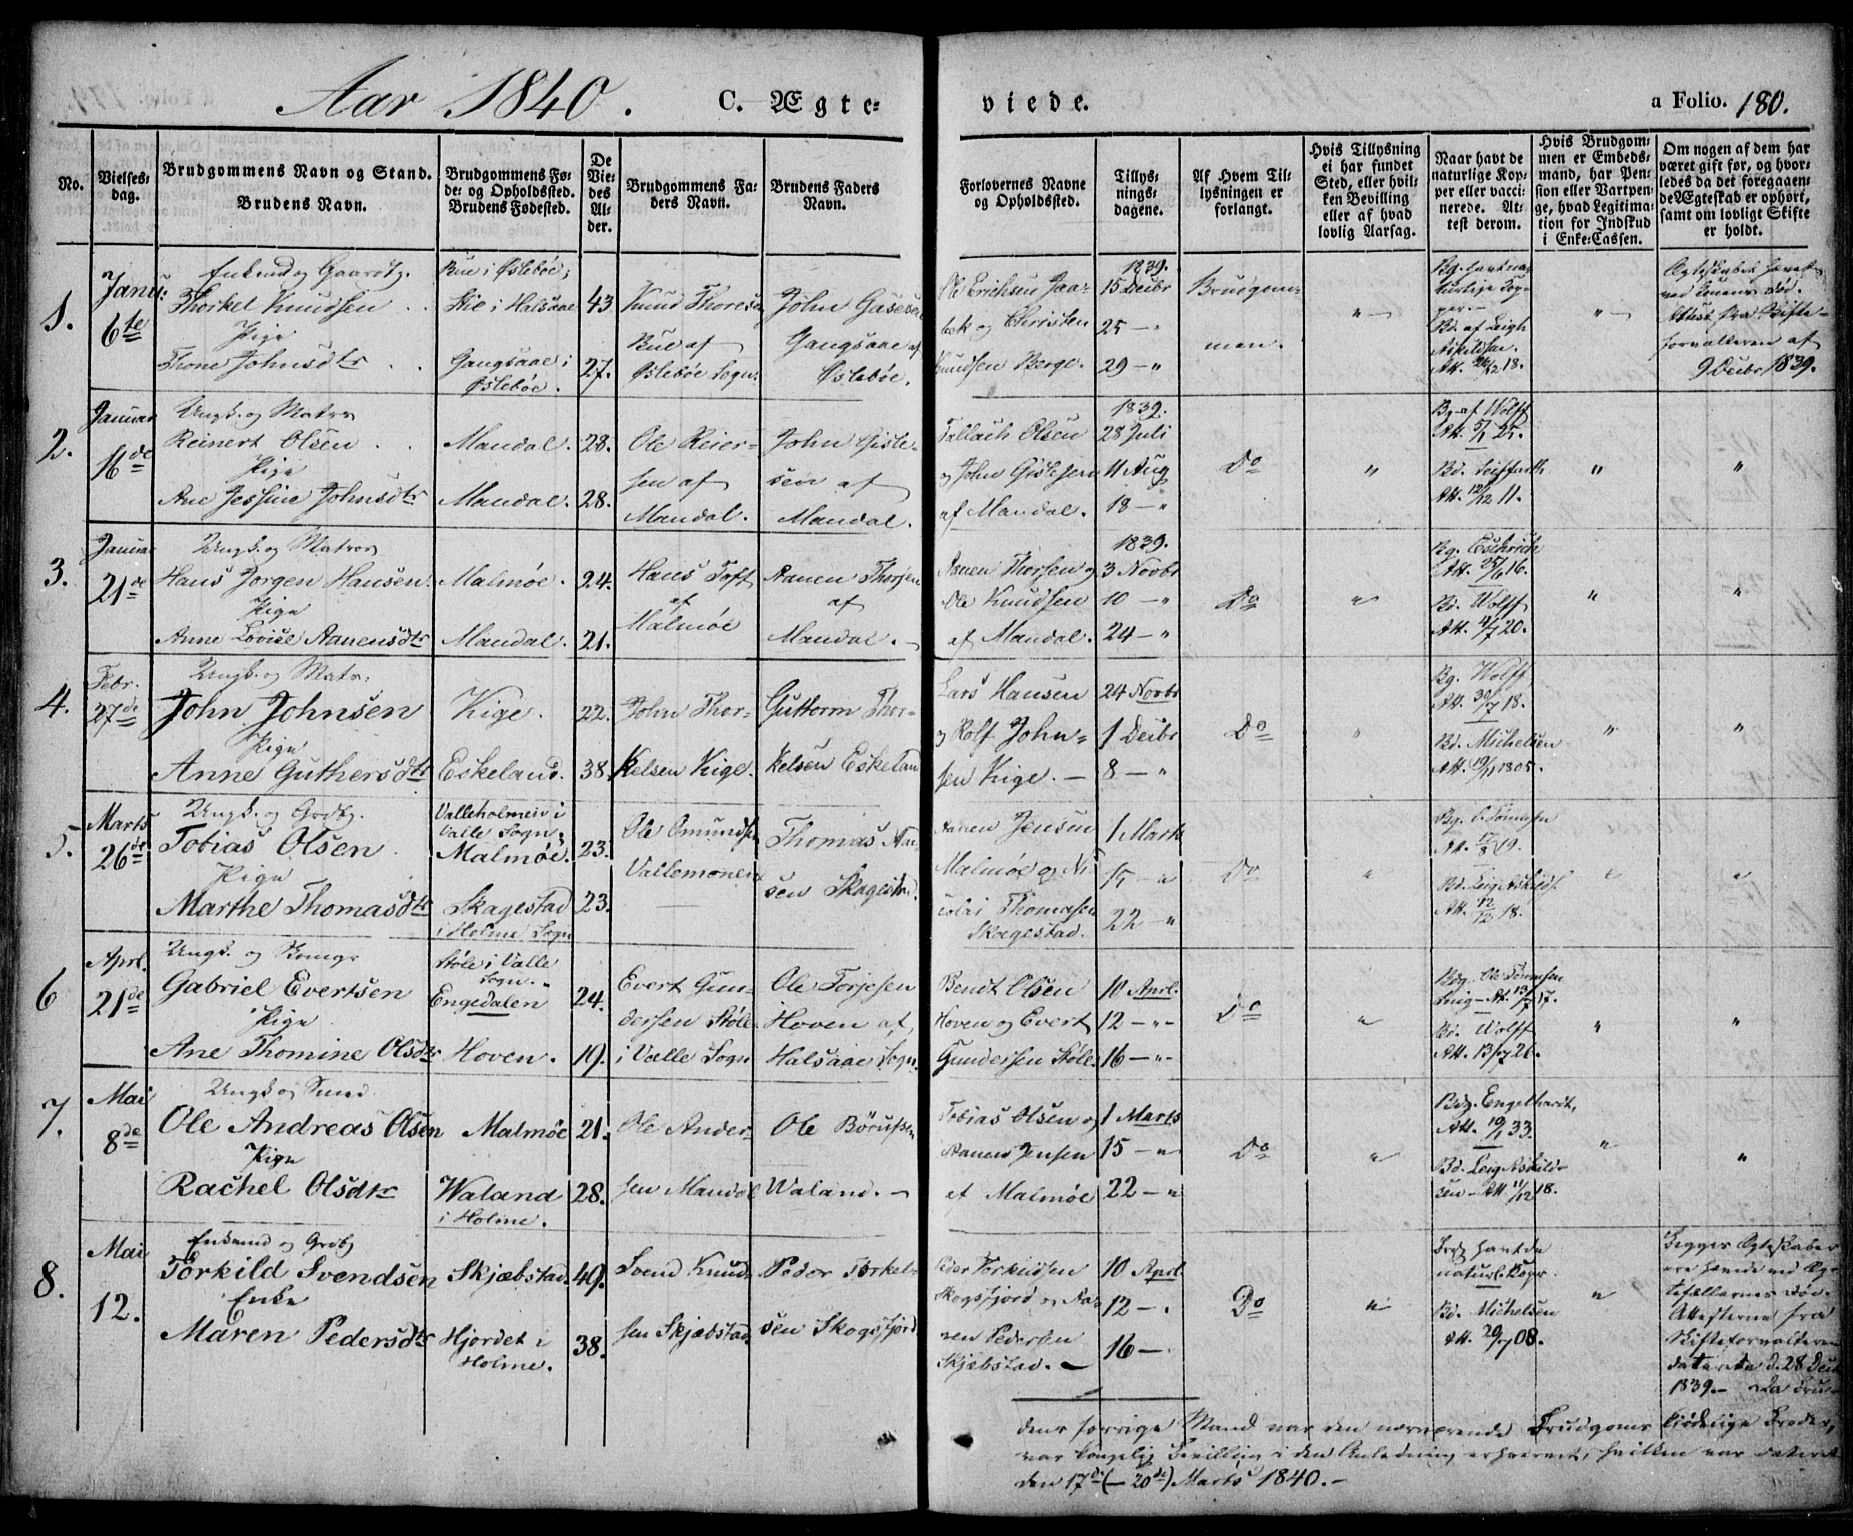 Aar 1840. C. Ægte= viede. a Folio. 180.
No.
Vielses-dag.
Brudgommens Navn og Stand.
Brudens Navn.
Brudgommens Fø-
de- og Opholdssted.
Brudens Fødested.
De Vie-des Al-der.
Brudgommens Fa-
ders Navn.
Brudens Faders
Navn.
Forlovernes Navne
og Opholdssted.
Tillys-
nings-
dagene.
Af Hvem Til-
lysningen er
forlangt.
Hvis Tillysning
ei har fundet
Sted, eller hvil-
ken Bevilling
eller af hvad
lovlig Aarsag.
Naar havt de
naturlige Kop-
per eller vacci-
nerede. At-
test derom.
Hvis Brudgom-
men er Embeds-
mand, har Pen-
sion eller Vartpen-
ge, hvad Legitima-
tion for Indskud
i Enke-Cassen.
Om nogen af dem har
været gift før, og hvor-
ledes da det foregaaen-
de Ægteskab er ophørt,
samt om lovligt Skifte
er holdt.
1. Janu: 6te
Enkemd og Gaardbg.
Thorkel Knudsen
Pige
Thone Johnsdtr
Bue i Øslebøe;
Kie i Halsaae
Gangsaae i
Øslebøe.
43
27.
Knud Thoresen
Bue af
Øslebøe Sogn.
John Gasesen
Gangsaae af
Øslebøe.
Ole Erichsen Jaa-
bek og Christen
Knudsen Berge.
1839.
15 Decbr
25 — "
29 — "
Brudgom-
men.
"
Bg. havt na-
turlige Kop-
per.—
Bd. af Leigh
Askildsen.
Att. 26/12 18.
"
Ægteskabet hævet
ved Konens Død.
Attest fra Skifte-
forvalteren af
9 Decbr 1839.
2. Januar 16de
Ungk. og Matros
Reinert Olsen
Pige
Ane Jessine Johnsdtr
Mandal.
Mandal.
28.
28.
Ole Reier-
sen af
Mandal.
John Gisle-
sen af
Mandal.
Tallach Olsen
og John Gislesen
af Mandal.
1839.
28 Juli
11 Aug
18 — "
Do
"
Bg. af Wolff
Att. 5/1 25.
Att. 12/12 11.
"
"
3. Januar 21de
Ungk. og Matros
Hans Jørgen Hansen
Pige
Anne Lovise Aanensdtr
Malmøe.
Mandal.
24.
21.
Hans Toft
af
Malmøe
Aanen Thorsen
af
Mandal.
Aanen Thorsen og
Ole Knudsen
af Mandal.
1839.
3 Novbr
10 — "
24 — "
Do
"
Bg. Eschrich
Att. 25/6 16.
Bd. Wolff
Att. 4/7 20.
"
"
4. Febr. 27de
Ungk. og Matr:
John Johnsen
Pige
Anne Guthersdtr
Kige.
Eskeland.
22.
38.
John Thor-
kelsen Kige.
Guttorm Thor-
kelsen Eskeland
Lars Hansen
og Rolf John-
sen Kige. —
24 Novbr
1 Decbr
8 — "
Do
"
Bg. Wolff
Att. 30/7 18.
Bd. Michelsen
Att. 19/11 1805.
"
"
5. Marts 26de
Ungk. og Grdbg.
Tobias Olsen
Pige
Marthe Thomasdtr
Valleholmen i
Valle Sogn.
Malmøe.
Skagestad
i Holme Sogn
23.
23.
Ole Omundsen
Vallemonen
Thomas Aane-
sen Skagestad.
Aanen Jensen
Malmøe og Ni-
colai Thomasen
Skagestad.
1 Marts
15 — "
22 — "
Do
"
Bg. O. Tønnesen
Att. 17/8 19.
Bd. Leig Askilds.
Att. 12/12 18.
"
"
6 Aprl. 21de
Gabriel Evertsen
Pige
Ane Thomine Olsdtr
Støle i Valle
Sogn.
Engedalen
Hoven.
24.
19.
Evert Gun-
dersen Støle
i Valle Sogn
Ole Torjesen
Hoven af
Halsaae Sogn.
Bendt Olsen
Hoven og Evert
Gundersen Støle.
10 Aprl.
12 — " -
16 — " -
Do
"
Bdg. Ole Tønnesen
Leig - At. 13/7 17.
Bd. Wolff
Att. 13/7 26.
"
"
7. Mai 8de
Ungk og Smed.
Ole Andreas Olsen
Pige
Rachel Olsdtr
Malmøe
Waland
i Holme.
21.
28.
Ole Ander-
sen Mandal
Ole Børufsen
Waland. —
Tobias Olsen og
Aanen Jensen
af Malmøe
1 Marts
15 — "
22 — "
Do
"
Bdg. Engelhardt,
Att. 19/1 33.
Bd. Leig Askild-
sen - Att 11/12 18.
"
"
8. Mai 12.
Enkemd og Grdbg
Torkild Svendsen
Enke
Maren Pedersdtr
Skjæbstad.
Hjordet i
Holme.
49.
38.
Svend Knud-
sen Skjæbstad.
Peder Torkel-
sen Skogsfjord
Peder Torkildsen
Skogsfjord og Aa-
nen Pedersen
Skjæbstad. —
10 Aprl
12 — .
16 — .
Do
"
Brdg havt de
naturl. Kopr.
Bd. Michelsen
Att. 20/7 08.
"
Begges Ægteskaber
ere hævede ved Æg-
tefællernes Død.
Attesterne fra
Skifteforvalteren
daterede d. 28 Decbr
1839. — Da Bru-
dens forrige Mand var den nærværende Brudgoms kjødelige Broder,
var kongelig Bevilling i den Anledning erhvervet, hvilken var dateret
den 17de (— 20de) Marts 1840. —